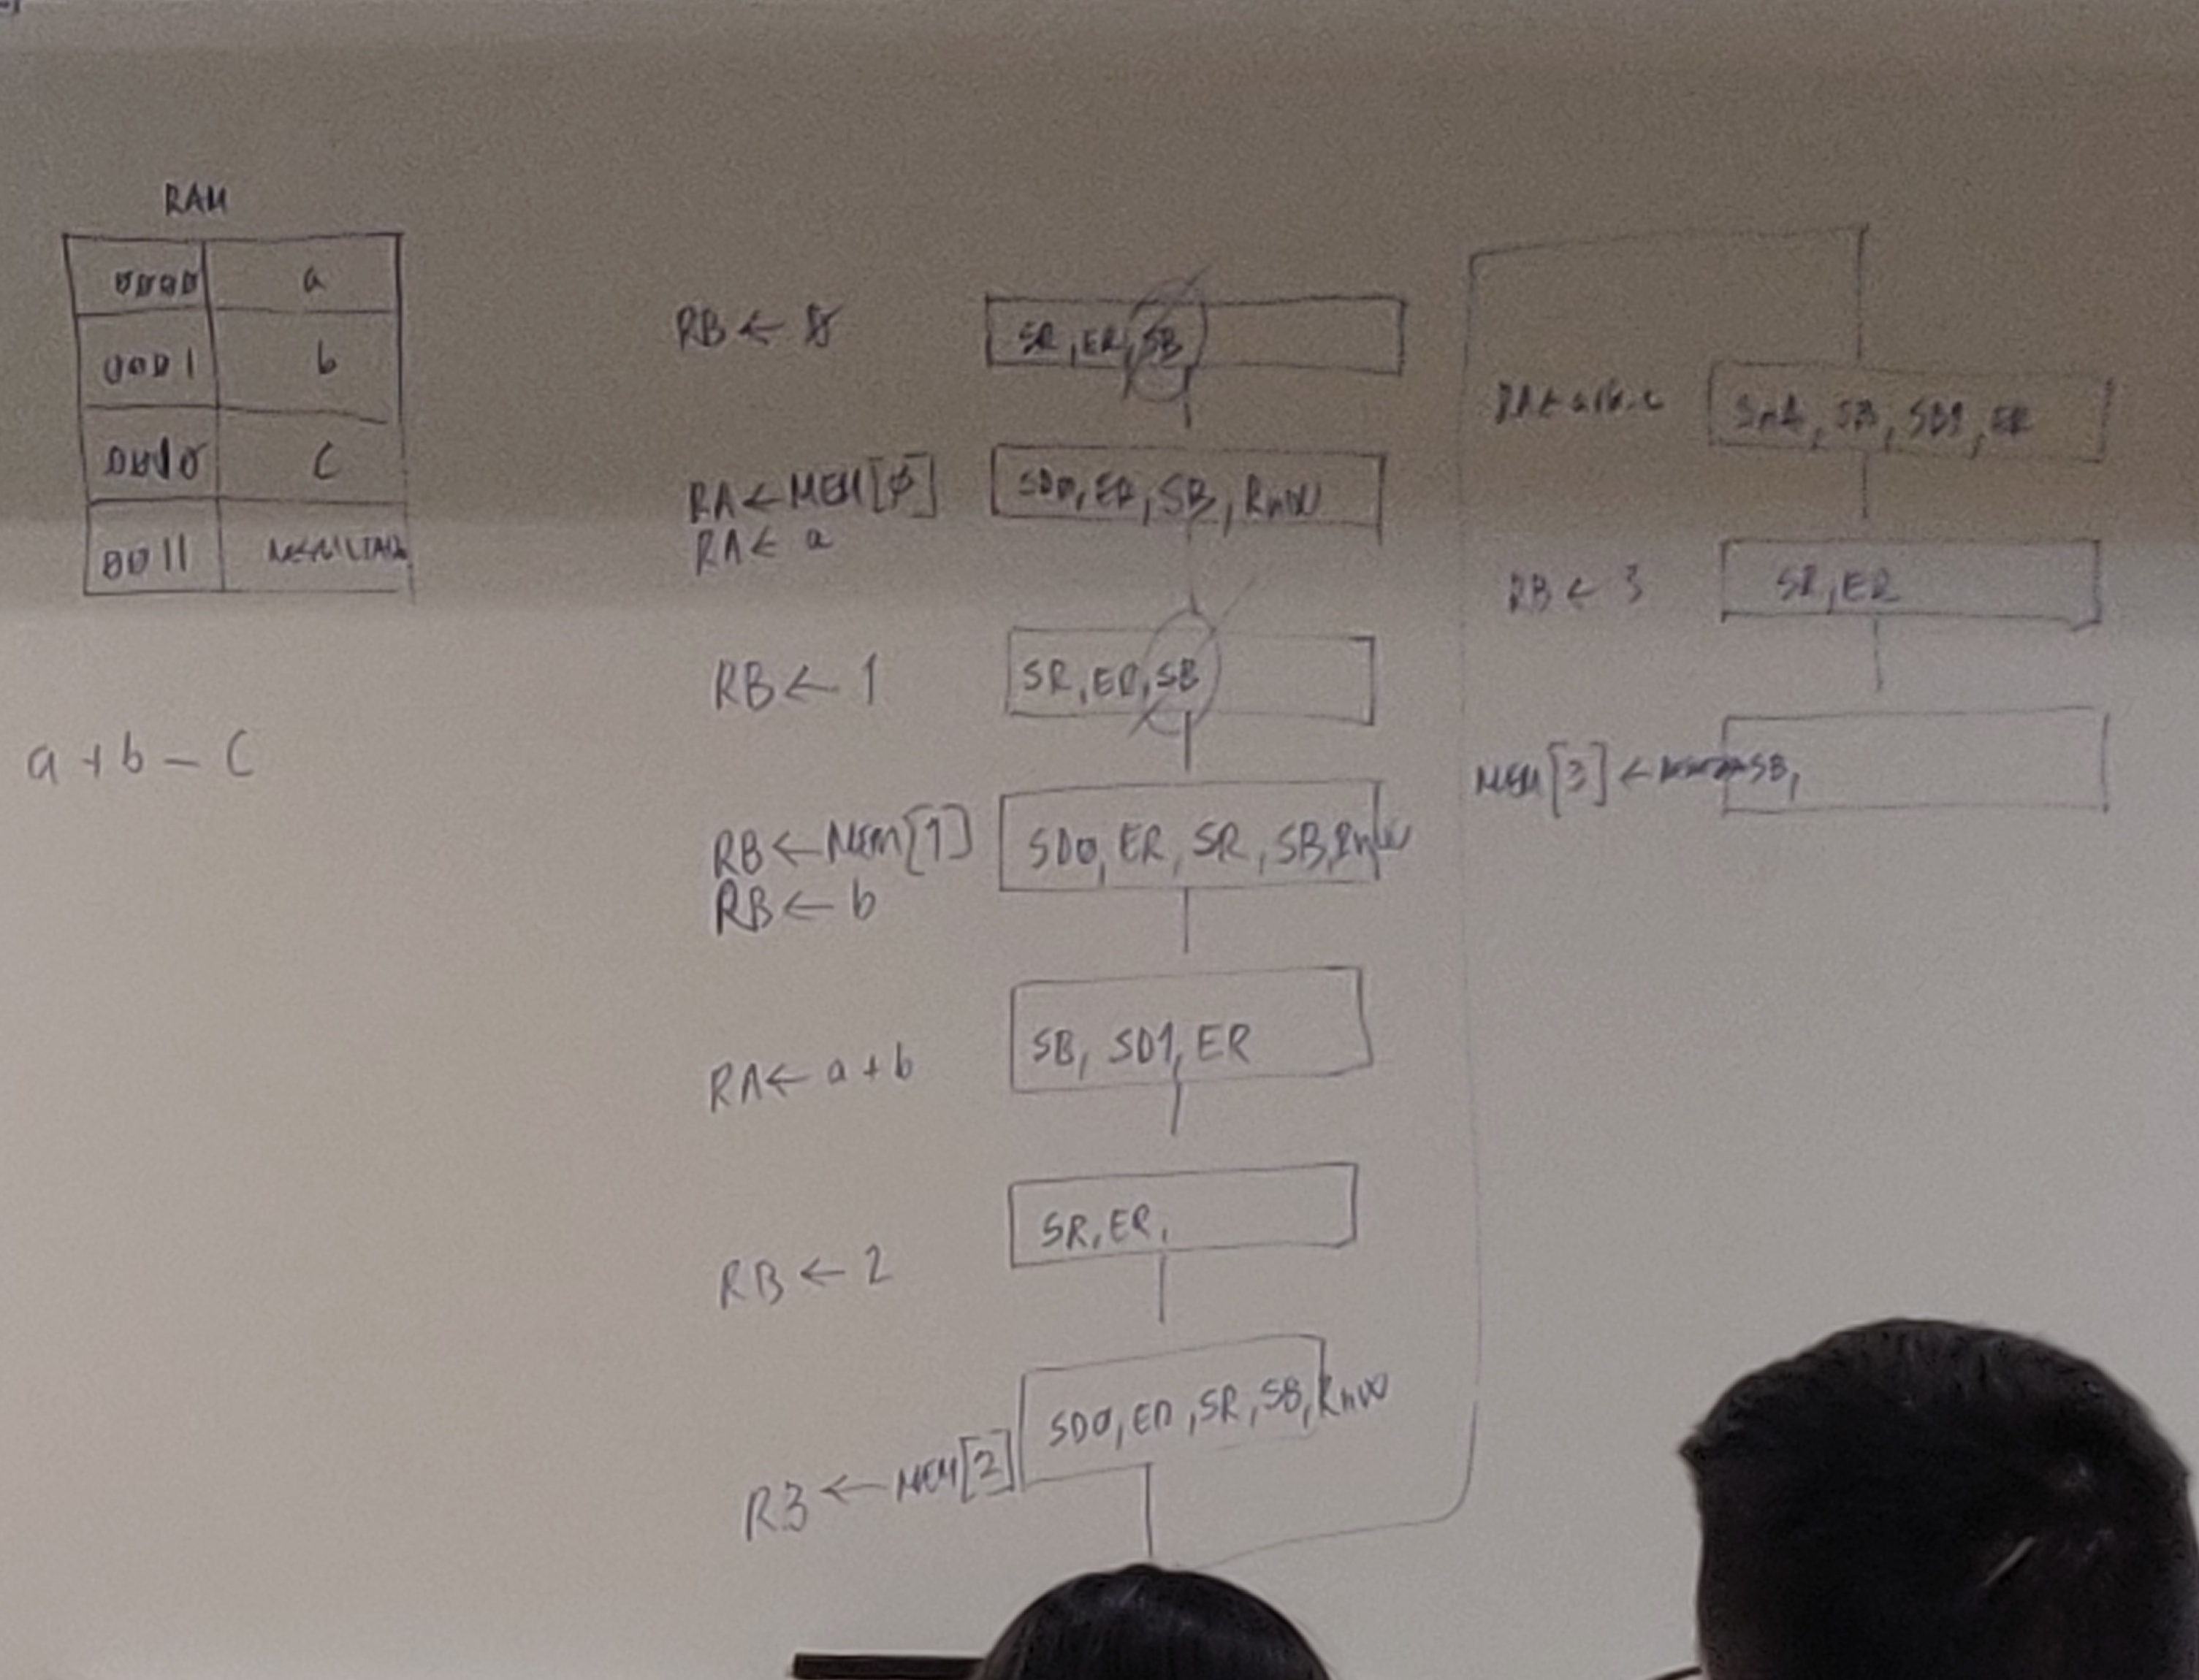 RAM
0000 a
0001 b
0010 C
0011
a + b - C
RB ← 0
SR, ER, SB
RA ← MEM[0]
RA ← a
SD0, ER, SB, RnW
RB ← 1
SR, ER, SB
RB ← MEM[1]
RB ← b
SD0, ER, SR, SB, RnW
RA ← a + b
SB, SD1, ER
RB ← 2
SR, ER,
RB ← MEM[2]
SD0, ER, SR, SB, RnW
RA ← a+b-c
SnA, SB, SD1, ER
RB ← 3
SR, ER
MEM[3] ←
SB,